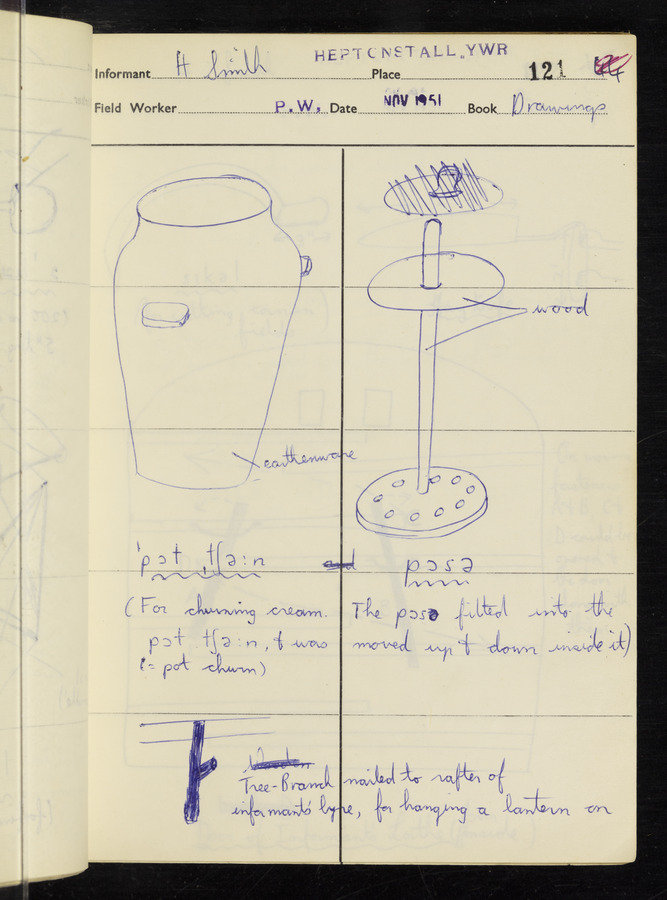 HEPTONSTALL. YWR
Informant H Smith Place 121
Field Worker P.W. Date NOV 1951 Book Drawings
wood
earthenware
ˈpɔt ˌtʃəːn and pɔsə
(For churning cream. The pɔsə fitted into the
pɔt tʃəːn, & was moved up & down inside it)
(= pot churn)
Wooden
Tree-Branch nailed to rafter of
informant's byre, for hanging a lantern on